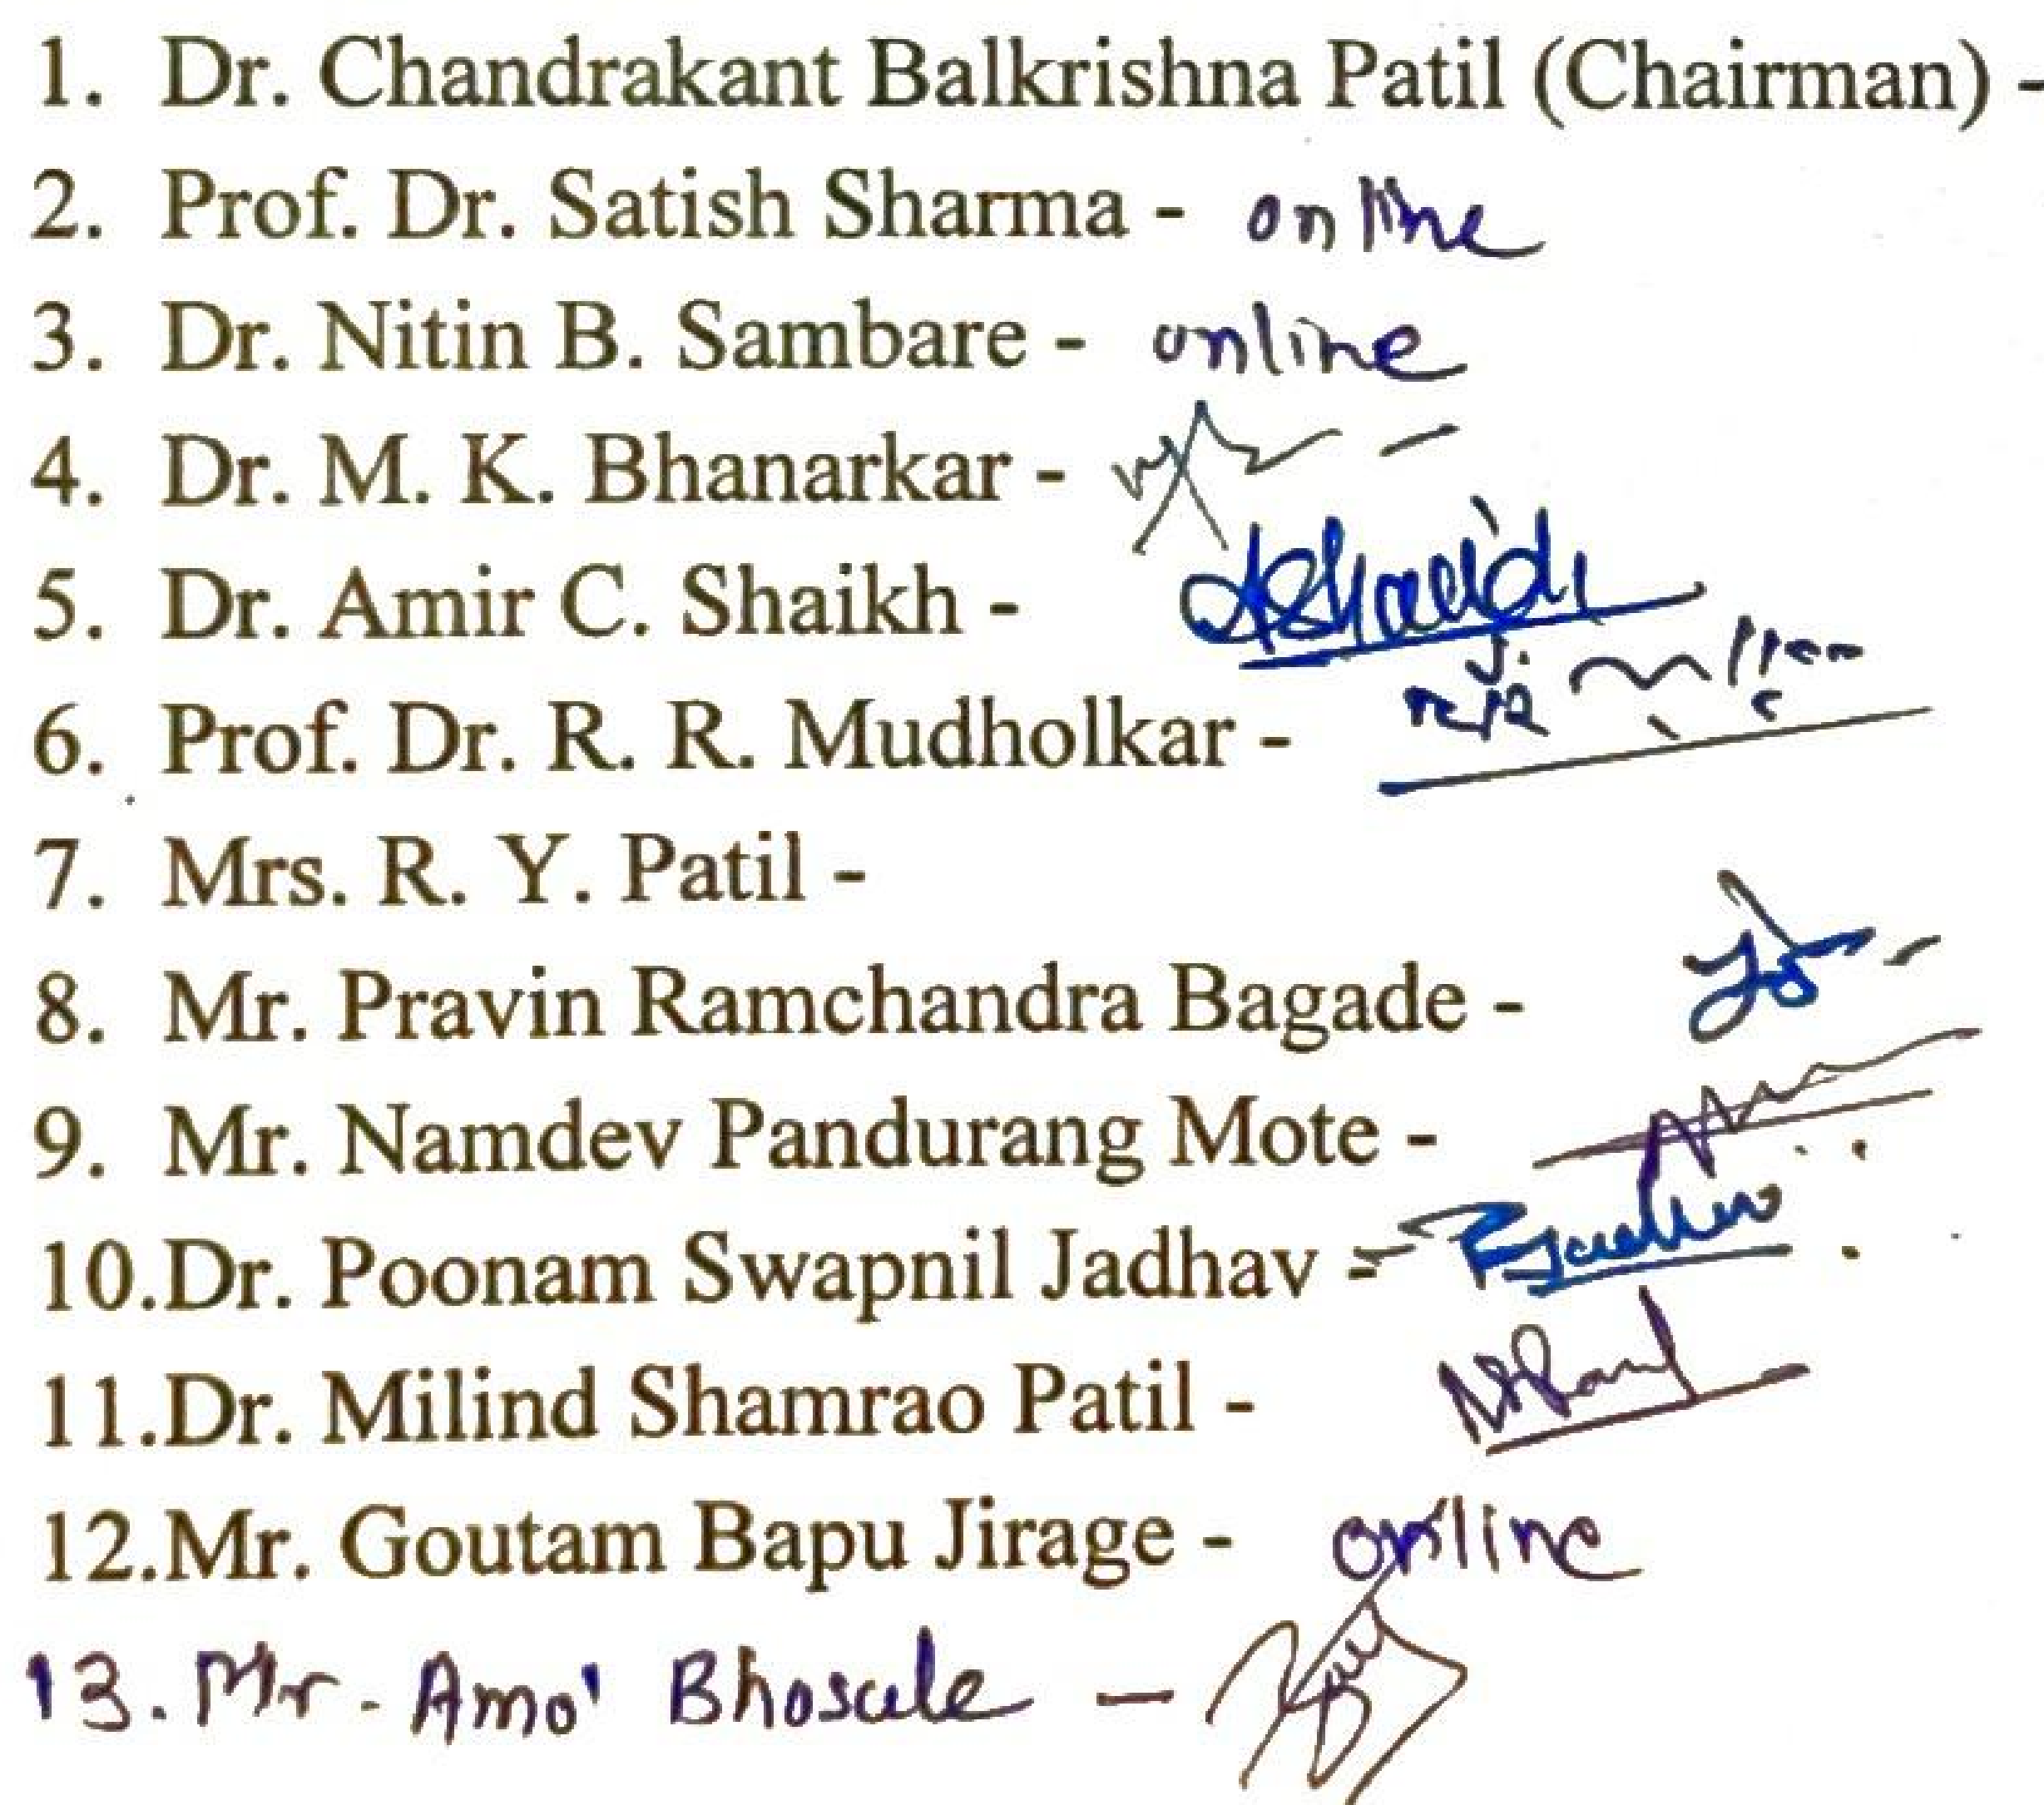 1. Dr. Chandrakant Balkrishna Patil (Chairman) -
2. Prof. Dr. Satish Sharma - online
3. Dr. Nitin B. Sambare - online
4. Dr. M. K. Bhanarkar -
5. Dr. Amir C. Shaikh -
6. Prof. Dr. R. R. Mudholkar -
7. Mrs. R. Y. Patil -
8. Mr. Pravin Ramchandra Bagade -
9. Mr. Namdev Pandurang Mote -
10.Dr. Poonam Swapnil Jadhav -
11.Dr. Milind Shamrao Patil -
12.Mr. Goutam Bapu Jirage - online
13. Mr. Bhosale -